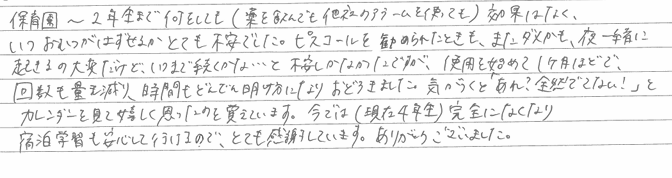 保育園～2年生まで何をしても(薬を飲んでも他社のアラームを使っても)効果はなく、
いつおむつがはずせるかとても不安でした。ピスコールを勧められたときも、またダメかも、夜一緒に
起きるの大変だけど、いつまで続くかな…と不安しかなかったですが、使用を始めて1ヶ月ほどで、
回数も量も減り、時間もどんどん明け方になりおどろきました。気がつくと「あれ?全然でてない!」と
カレンダーを見て嬉しく思ったのを覚えています。今では(現在4年生)完全になくなり
宿泊学習も安心して行けるので、とても感謝しています。ありがとうございました。